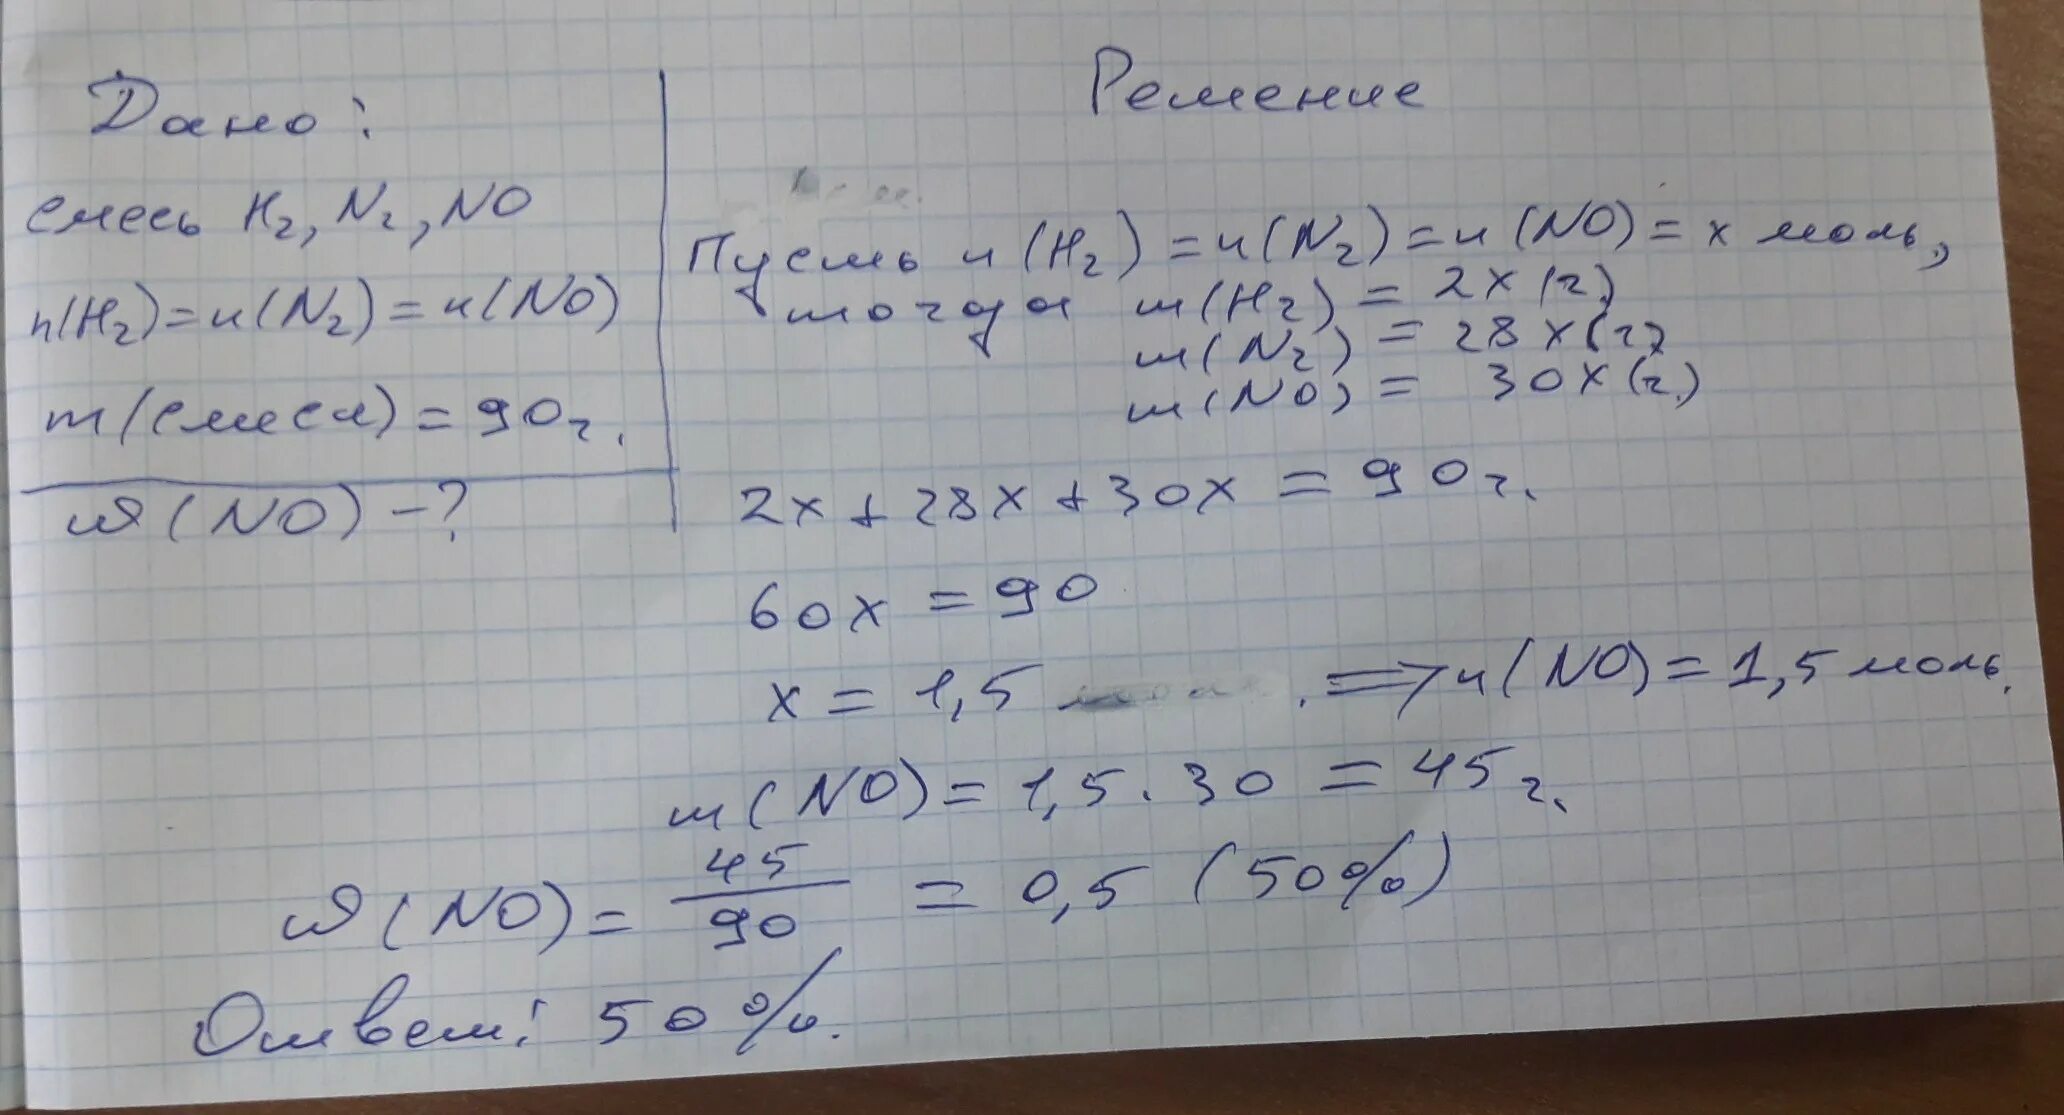 Дано:
смесь H₂, N₂, NO
n(H₂) = n(N₂) = n(NO)
m(смеси) = 90 г.
ω(NO) - ?
Решение
Пусть n(H₂) = n(N₂) = n(NO) = x моль,
тогда m(H₂) = 2x (г)
m(N₂) = 28x (г)
m(NO) = 30x (г.)
2x + 28x + 30x = 90 г.
60x = 90
x = 1,5 . ⟹ n(NO) = 1,5 моль.
m(NO) = 1,5 · 30 = 45 г.
ω(NO) = 45/90 = 0,5 (50%)
Ответ: 50%.